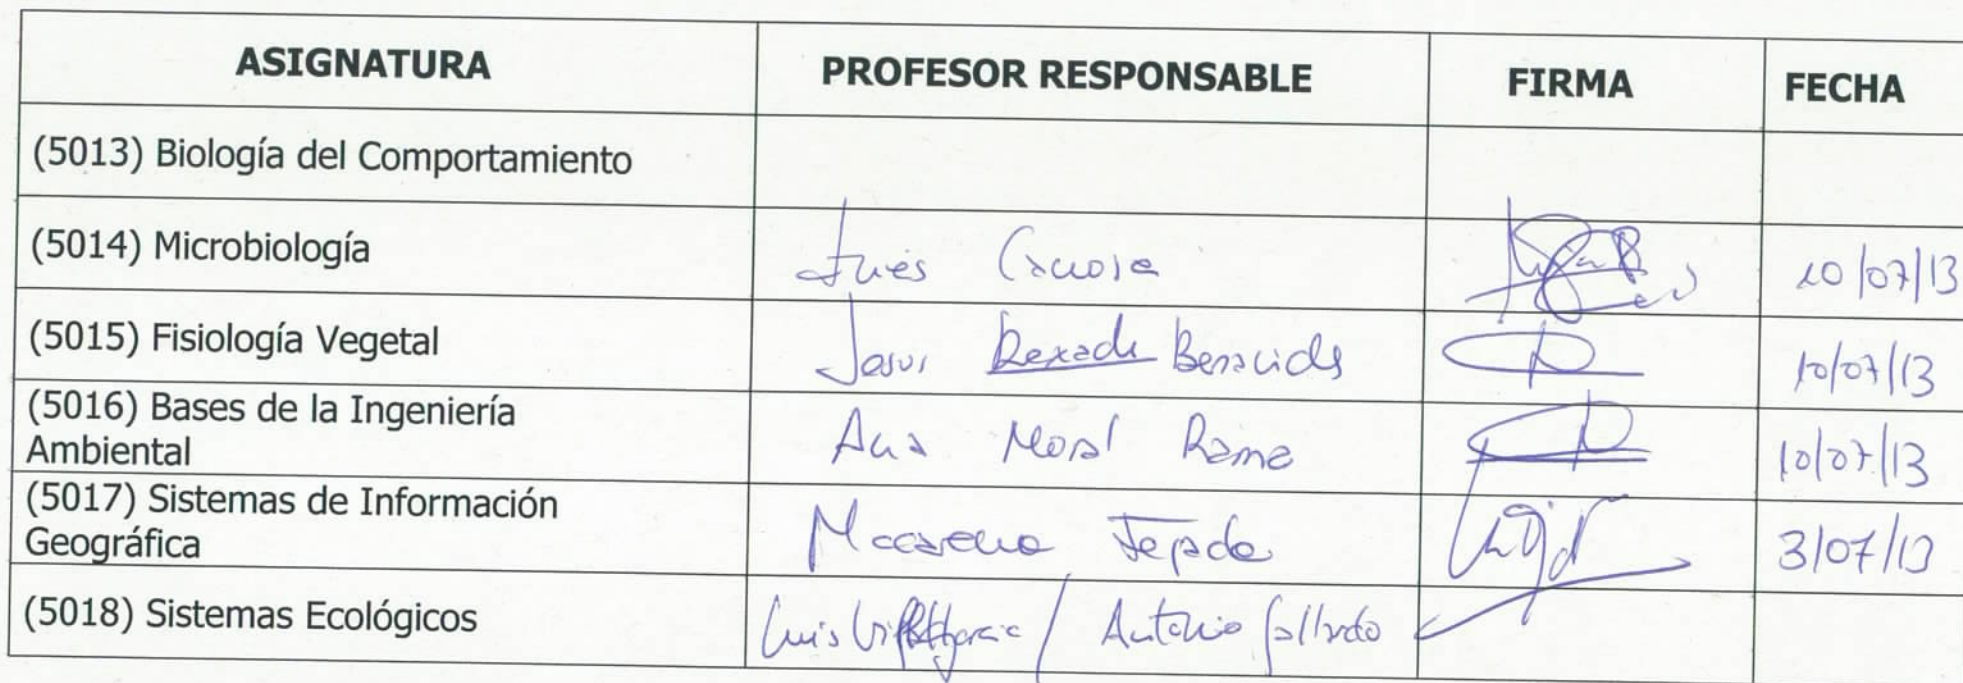 ASIGNATURA PROFESOR RESPONSABLE FIRMA FECHA
(5013) Biología del Comportamiento
(5014) Microbiología Inés 10/07/13
(5015) Fisiología Vegetal Jesús Rexach Benavides 10/07/13
(5016) Bases de la Ingeniería
Ambiental Ana Moral Rama 10/07/13
(5017) Sistemas de Información
Geográfica Macarena Tejada 3/07/13
(5018) Sistemas Ecológicos Luis / Antonio Gallardo